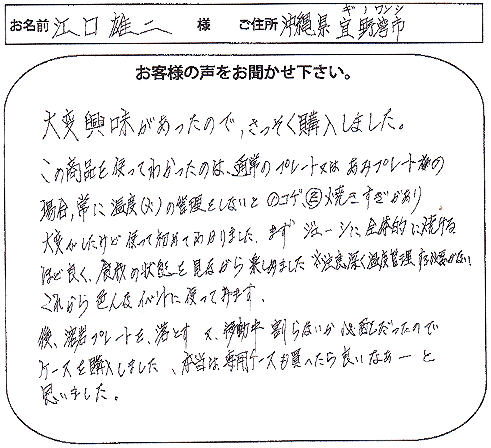 お名前 江口雄二 様 ご住所 沖縄県 宜野湾市
ギノワンシ
お客様の声をお聞かせ下さい。
大変興味があったので、さっそく購入しました。
この商品を使ってわかったのは、通常のプレート又は あみプレート等の
場合、常に温度(火)の管理をしないと ①コゲ、②焼きすぎがあり
大変でしたけど 使って初めてわかりました、まず ジューシに全体的に焼ける
ほど良く、食材の状態を見ながら楽しめました
これから色んなイベントに使ってみます。
後、溶岩プレートを、落とす 又、移動中 割らないか心配だったので
ケースを購入しました、本当は、専用ケースも買へたら良いなぁーと
思いました。